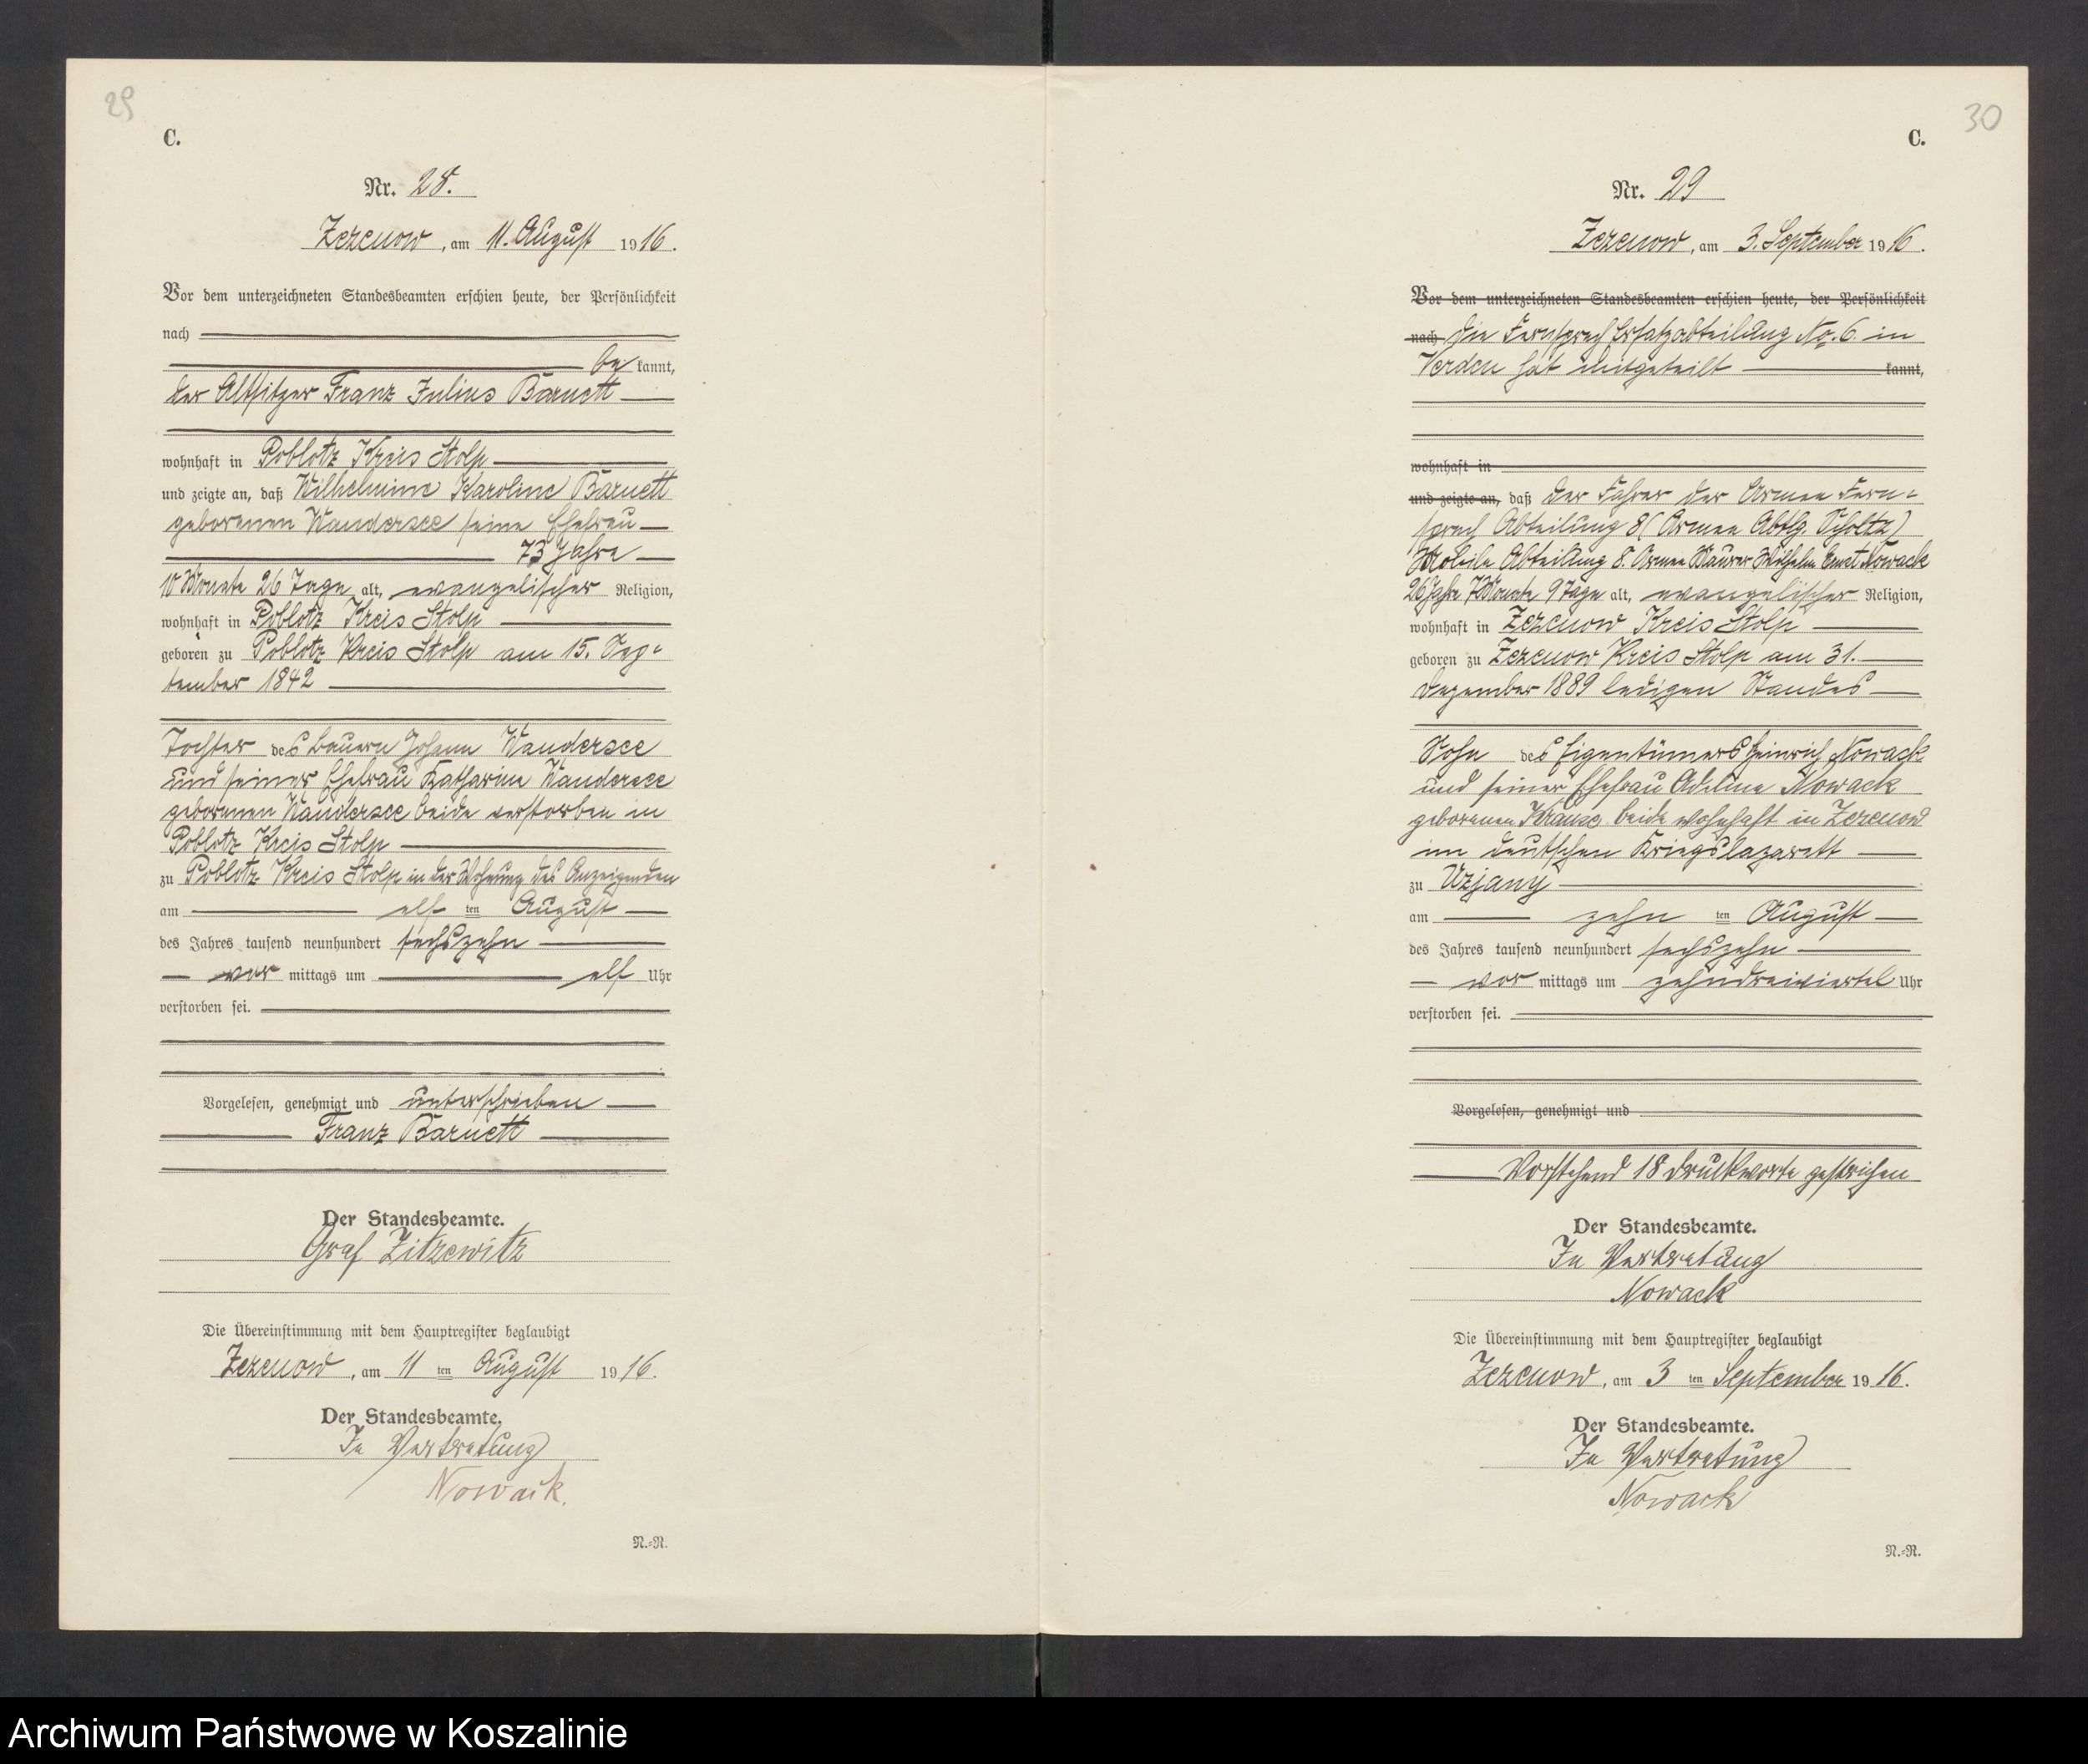 29
C.
Nr. 28.
Zezenow, am 11. August 1916.
Vor dem unterzeichneten Standesbeamten erschien heute, der Persönlichkeit
nach
be kannt,
der Altsitzer Franz Julius Barnett
wohnhaft in Poblotz Kreis Stolp
und zeigte an, daß Wilhelmine Karoline Barnett
geborenen Wandersee seine Ehefrau
73 Jahre
10 Monate 26 Tage alt, evangelischer Religion,
wohnhaft in Poblotz Kreis Stolp
geboren zu Poblotz Kreis Stolp am 15. Sep-
tember 1842
Tochter des Bauern Johann Wandersee
und seiner Ehefrau Katharine Wandersee
geborenen Wandersee beide verstorben in
Poblotz Kreis Stolp
zu Poblotz Kreis Stolp in der Wohnung des Anzeigenden
am elf ten August
des Jahres tausend neunhundert sechszehn
vor mittags um elf Uhr
verstorben sei.
Vorgelesen, genehmigt und unterschrieben
Franz Barnett
Der Standesbeamte.
Graf Zitzewitz
Die Übereinstimmung mit dem Hauptregister beglaubigt
Zezenow, am 11 ten August 1916.
Der Standesbeamte.
In Vertretung
Nowack.
N.-R.
30
C.
Nr. 29
Zezenow, am 3. September 1916.
Vor dem unterzeichneten Standesbeamten erschien heute, der Persönlichkeit
nach die Fernsprech Ersatzabteilung No. 6. in
Verden hat mitgeteilt kannt,
wohnhaft in
und zeigte an, daß der Fahrer der Armee Fern-
sprech Abteilung 8 (Armee Abtlg. Scholtz)
Mobile Abteilung 8. Armee Maurer Wilhelm Ernst Nowack
26 Jahre 7 Monate 9 Tage alt, evangelischer Religion,
wohnhaft in Zezenow Kreis Stolp
geboren zu Zezenow Kreis Stolp am 31.
Dezember 1889 ledigen Standes
Sohn des Eigentümers Heinrich Nowack
und seiner Ehefrau Adeline Nowack
geborenen Krause beide wohnhaft in Zezenow
im deutschen Kriegslazarett
zu Uzjany
am zehn ten August
des Jahres tausend neunhundert sechszehn
vor mittags um zehndreiviertel Uhr
verstorben sei.
Vorgelesen, genehmigt und
Vorstehend 18 Druckworte gestrichen
Der Standesbeamte.
In Vertretung
Nowack
Die Übereinstimmung mit dem Hauptregister beglaubigt
Zezenow, am 3 ten September 1916.
Der Standesbeamte.
In Vertretung
Nowack
N.-R.
Archiwum Państwowe w Koszalinie